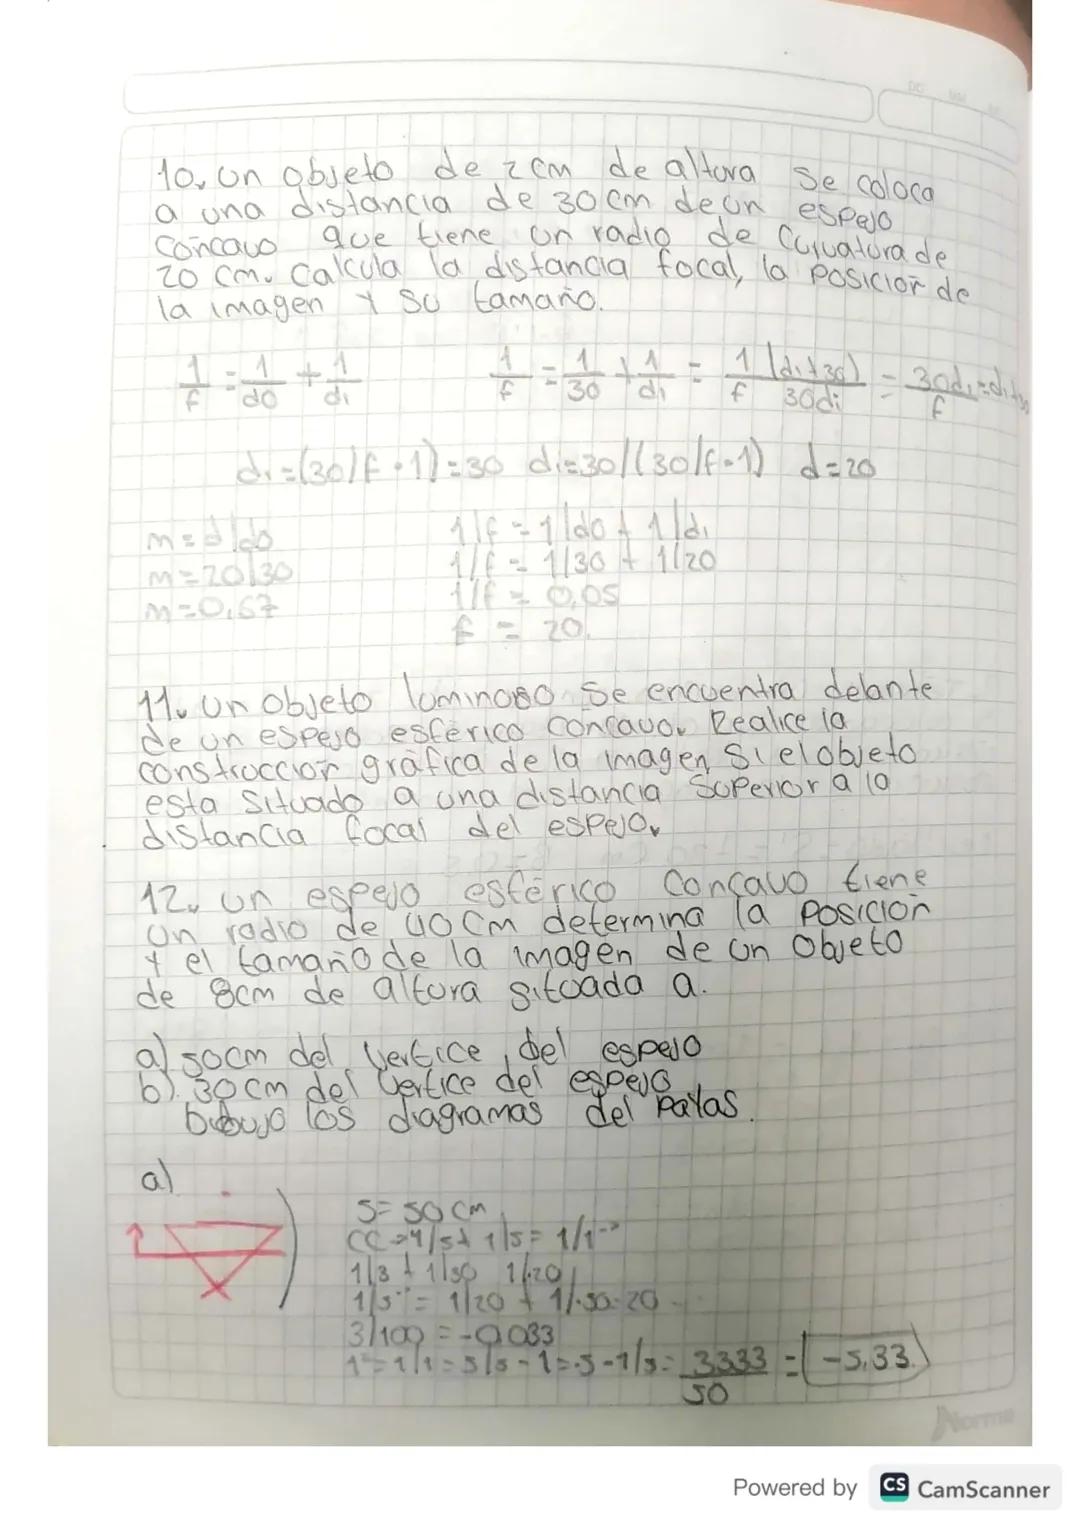 10. Un objeto de 2cm de altura se coloca
a una distancia de 30cm de un espejo
concavo que tiene un radio de curvatura de
20 cm. Calcula la distancia focal, la posicion de
la imagen y su tamaño.
1/f = 1/do + 1/di
1/f = 1/30 + 1/di = 1/f (di+30)/30di = 30di/f = di+30
di=(30/f-1)=30 di=30/(30/f-1) d=20
m=d/do
m=20/30
m=0,67
1/f = 1/do + 1/di
1/f = 1/30 + 1/20
1/f = 0,05
f = 20.
11. Un objeto luminoso se encuentra delante
de un espejo esférico concavo. Realice la
construccion gráfica de la imagen si el objeto
esta situado a una distancia superior a la
distancia focal del espejo.
12. Un espejo esférico concavo tiene
un radio de 40 cm determina la posicion
y el tamaño de la imagen de un objeto
de 8cm de altura situada a.
a) 50cm del vertice del espejo
b). 30cm del vertice del espejo
los diagramas del
a)
S= 50 cm
1/20
3/100 = -0,033
3333/50 = -5,33.
Norma
Powered by CS CamScanner